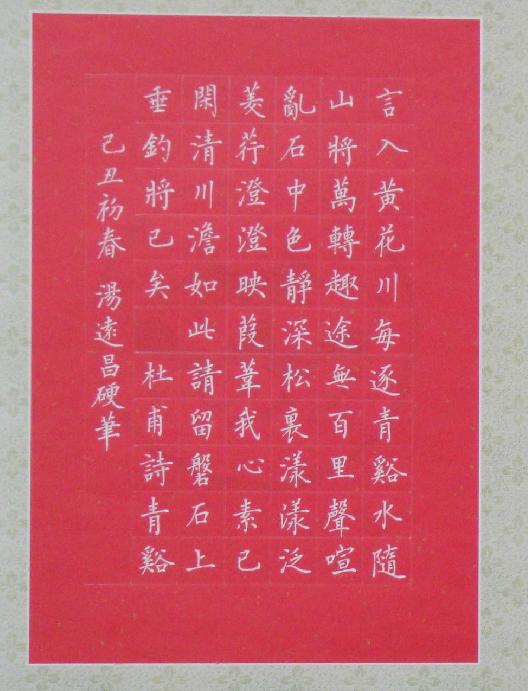 言入黄花川每逐青谿水隨
山將萬轉趣途無百里聲喧
亂石中色靜深松裏漾漾泛
菱荇澄澄映葭葦我心素已
閑清川澹如此請留磐石上
垂釣將已矣 杜甫詩青谿
己丑初春 湯遠昌硬筆